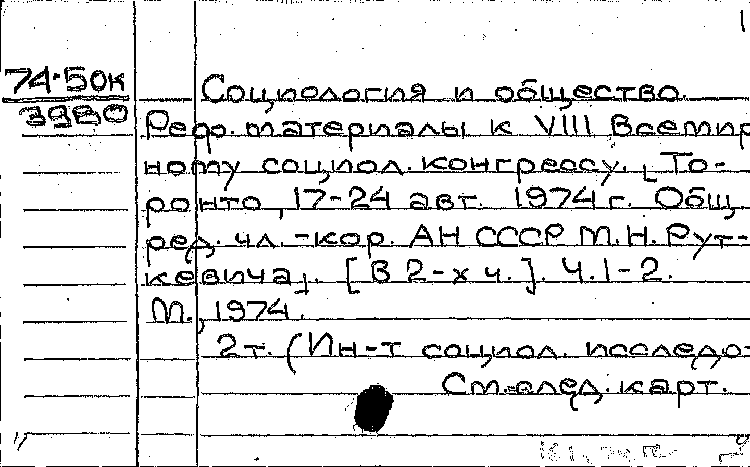 1
74-50к
3980
Социология и общество.
Реф. материалы к VIII Всемир
ному социол. конгрессу. [То-
ронто, 17-24 авт. 1974 г. Общ.
ред. чл.-кор. АН СССР М.Н. Рут-
кевича]. [В 2-х ч.]. Ч.1-2.
М., 1974.
2т. (Ин-т социол. исследо
См. след. карт.